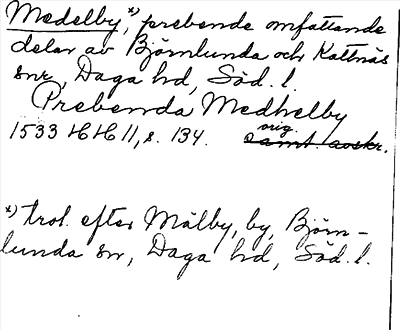 Medelby,*) prebende omfattande
delar av Björnlunda och Kattnäs
snr, Daga hd, Söd. l.
Prebenda Medhelby
orig.
1533 HH 11, s. 134. samt. avskr.
*) trol. efter Mälby, by, Björn-
lunda sn, Daga hd, Söd. l.